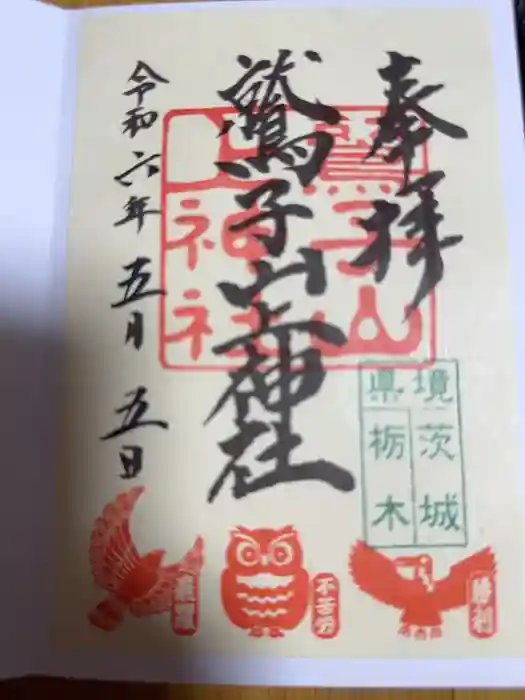 奉拝
鷲子山上神社
令和六年五月五日
鷲子山
上神社
県境
茨城
栃木
不苦労
勝利